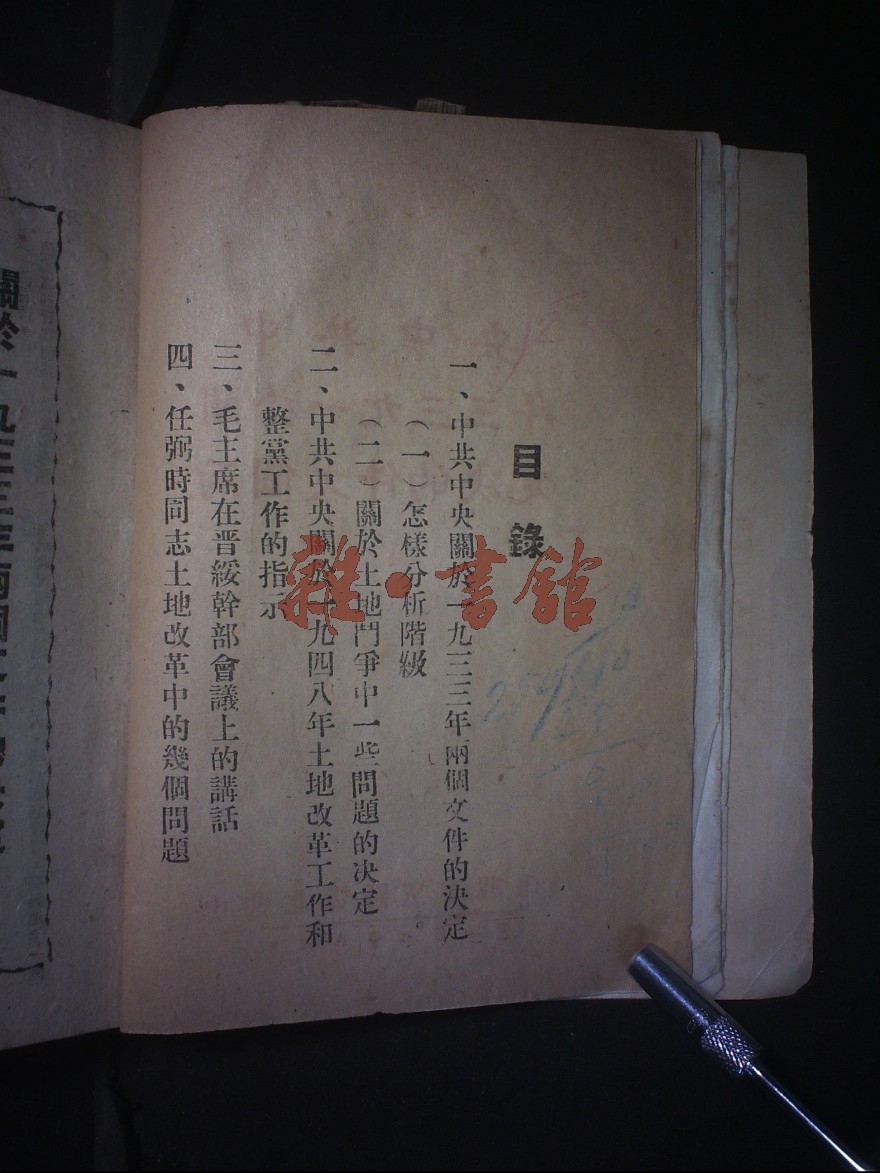 目錄
一、中共中央關於一九三三年兩個文件的決定
（一）怎樣分析階級
（二）關於土地鬥爭中一些問題的決定
二、中共中央關於一九四八年土地改革工作和
整黨工作的指示
三、毛主席在晋綏幹部會議上的講話
四、任弼時同志土地改革中的幾個問題
關於一九三三年兩個文件的決定
雜·書館